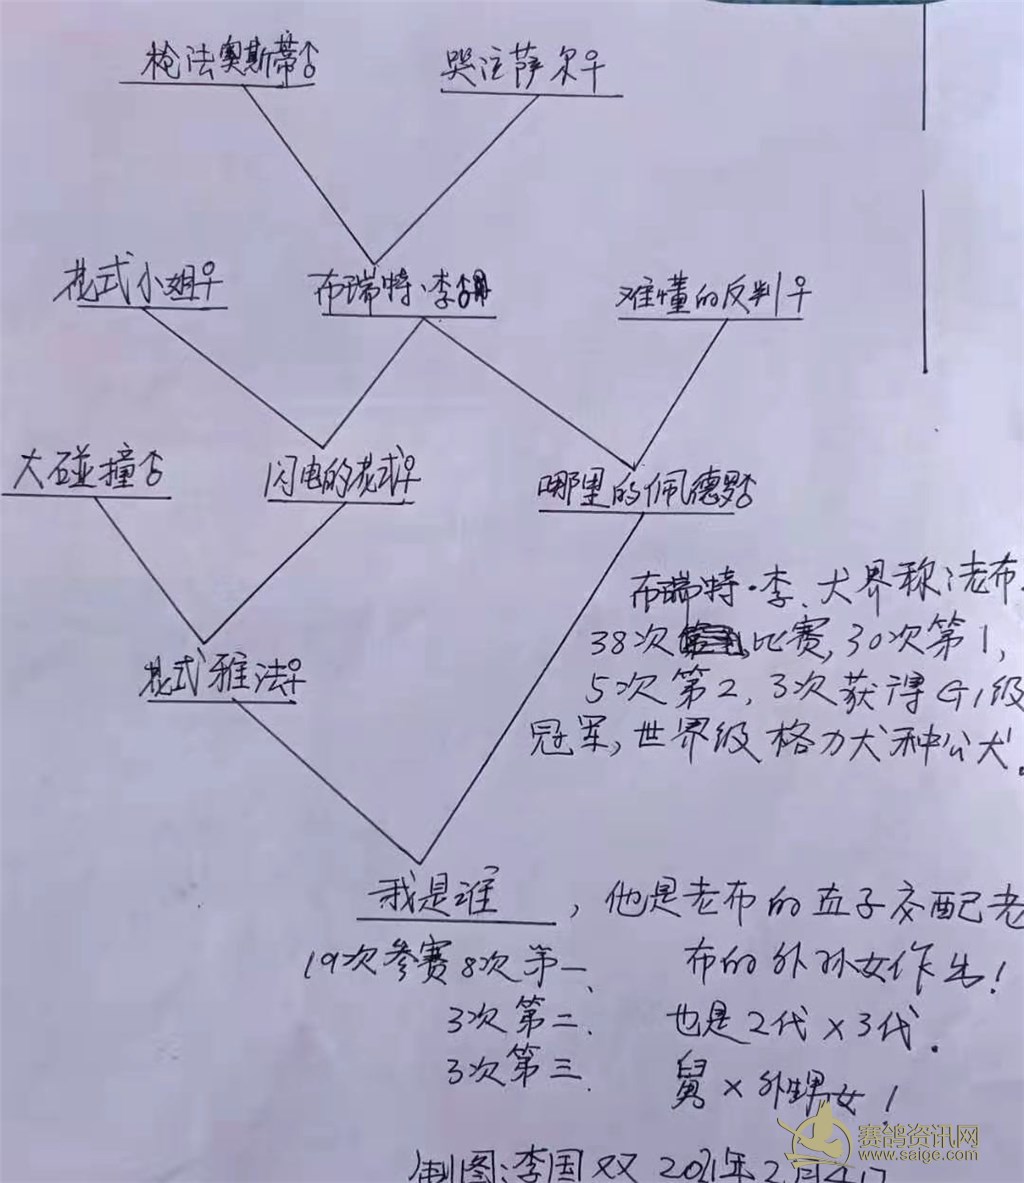 枪法奥斯蒂♂ 哭泣萨尔♀
花式小姐♀ 布瑞特·李♂ 难懂的反判♀
大碰撞♂ 闪电的花式♀ 哪里的佩德罗♂
布瑞特·李、犬界称:老布.
38次 比赛,30次第1,
5次第2,3次获得G1级
花式雅法♀
冠军,世界级格力犬种公犬.
我是谁 ,他是老布的直子交配老
19次参赛8次第一、 布的外孙女作出!
3次第二. 也是2代×3代.
3次第三. 舅×外甥女!
制图:李国双 2021年2月4日
赛鸽资讯网
www.saige.com